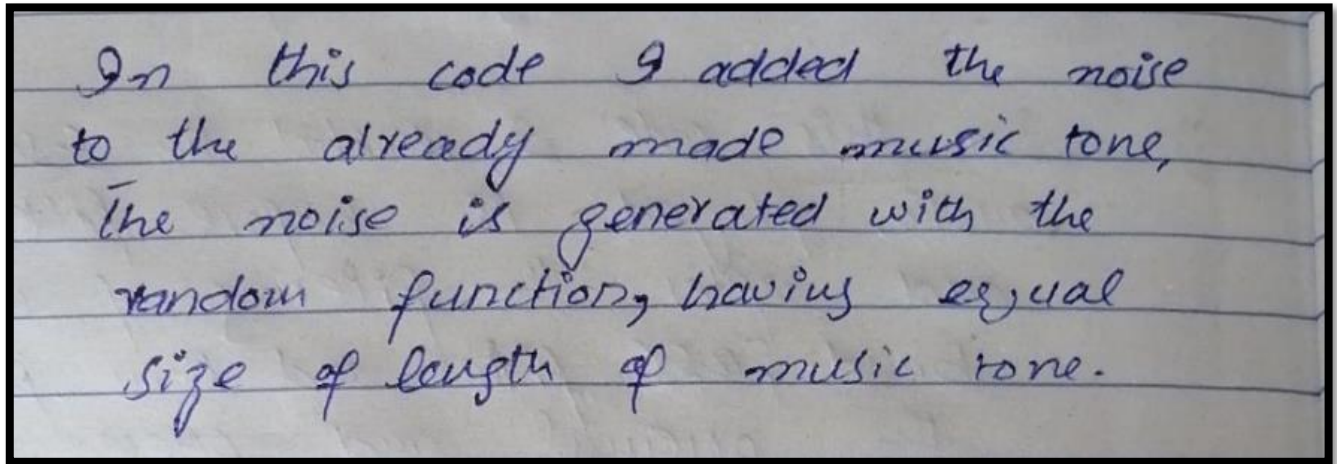 In this code I added the noise
to the already made music tone,
The noise is generated with the
random function, having equal
size of length of music tone.